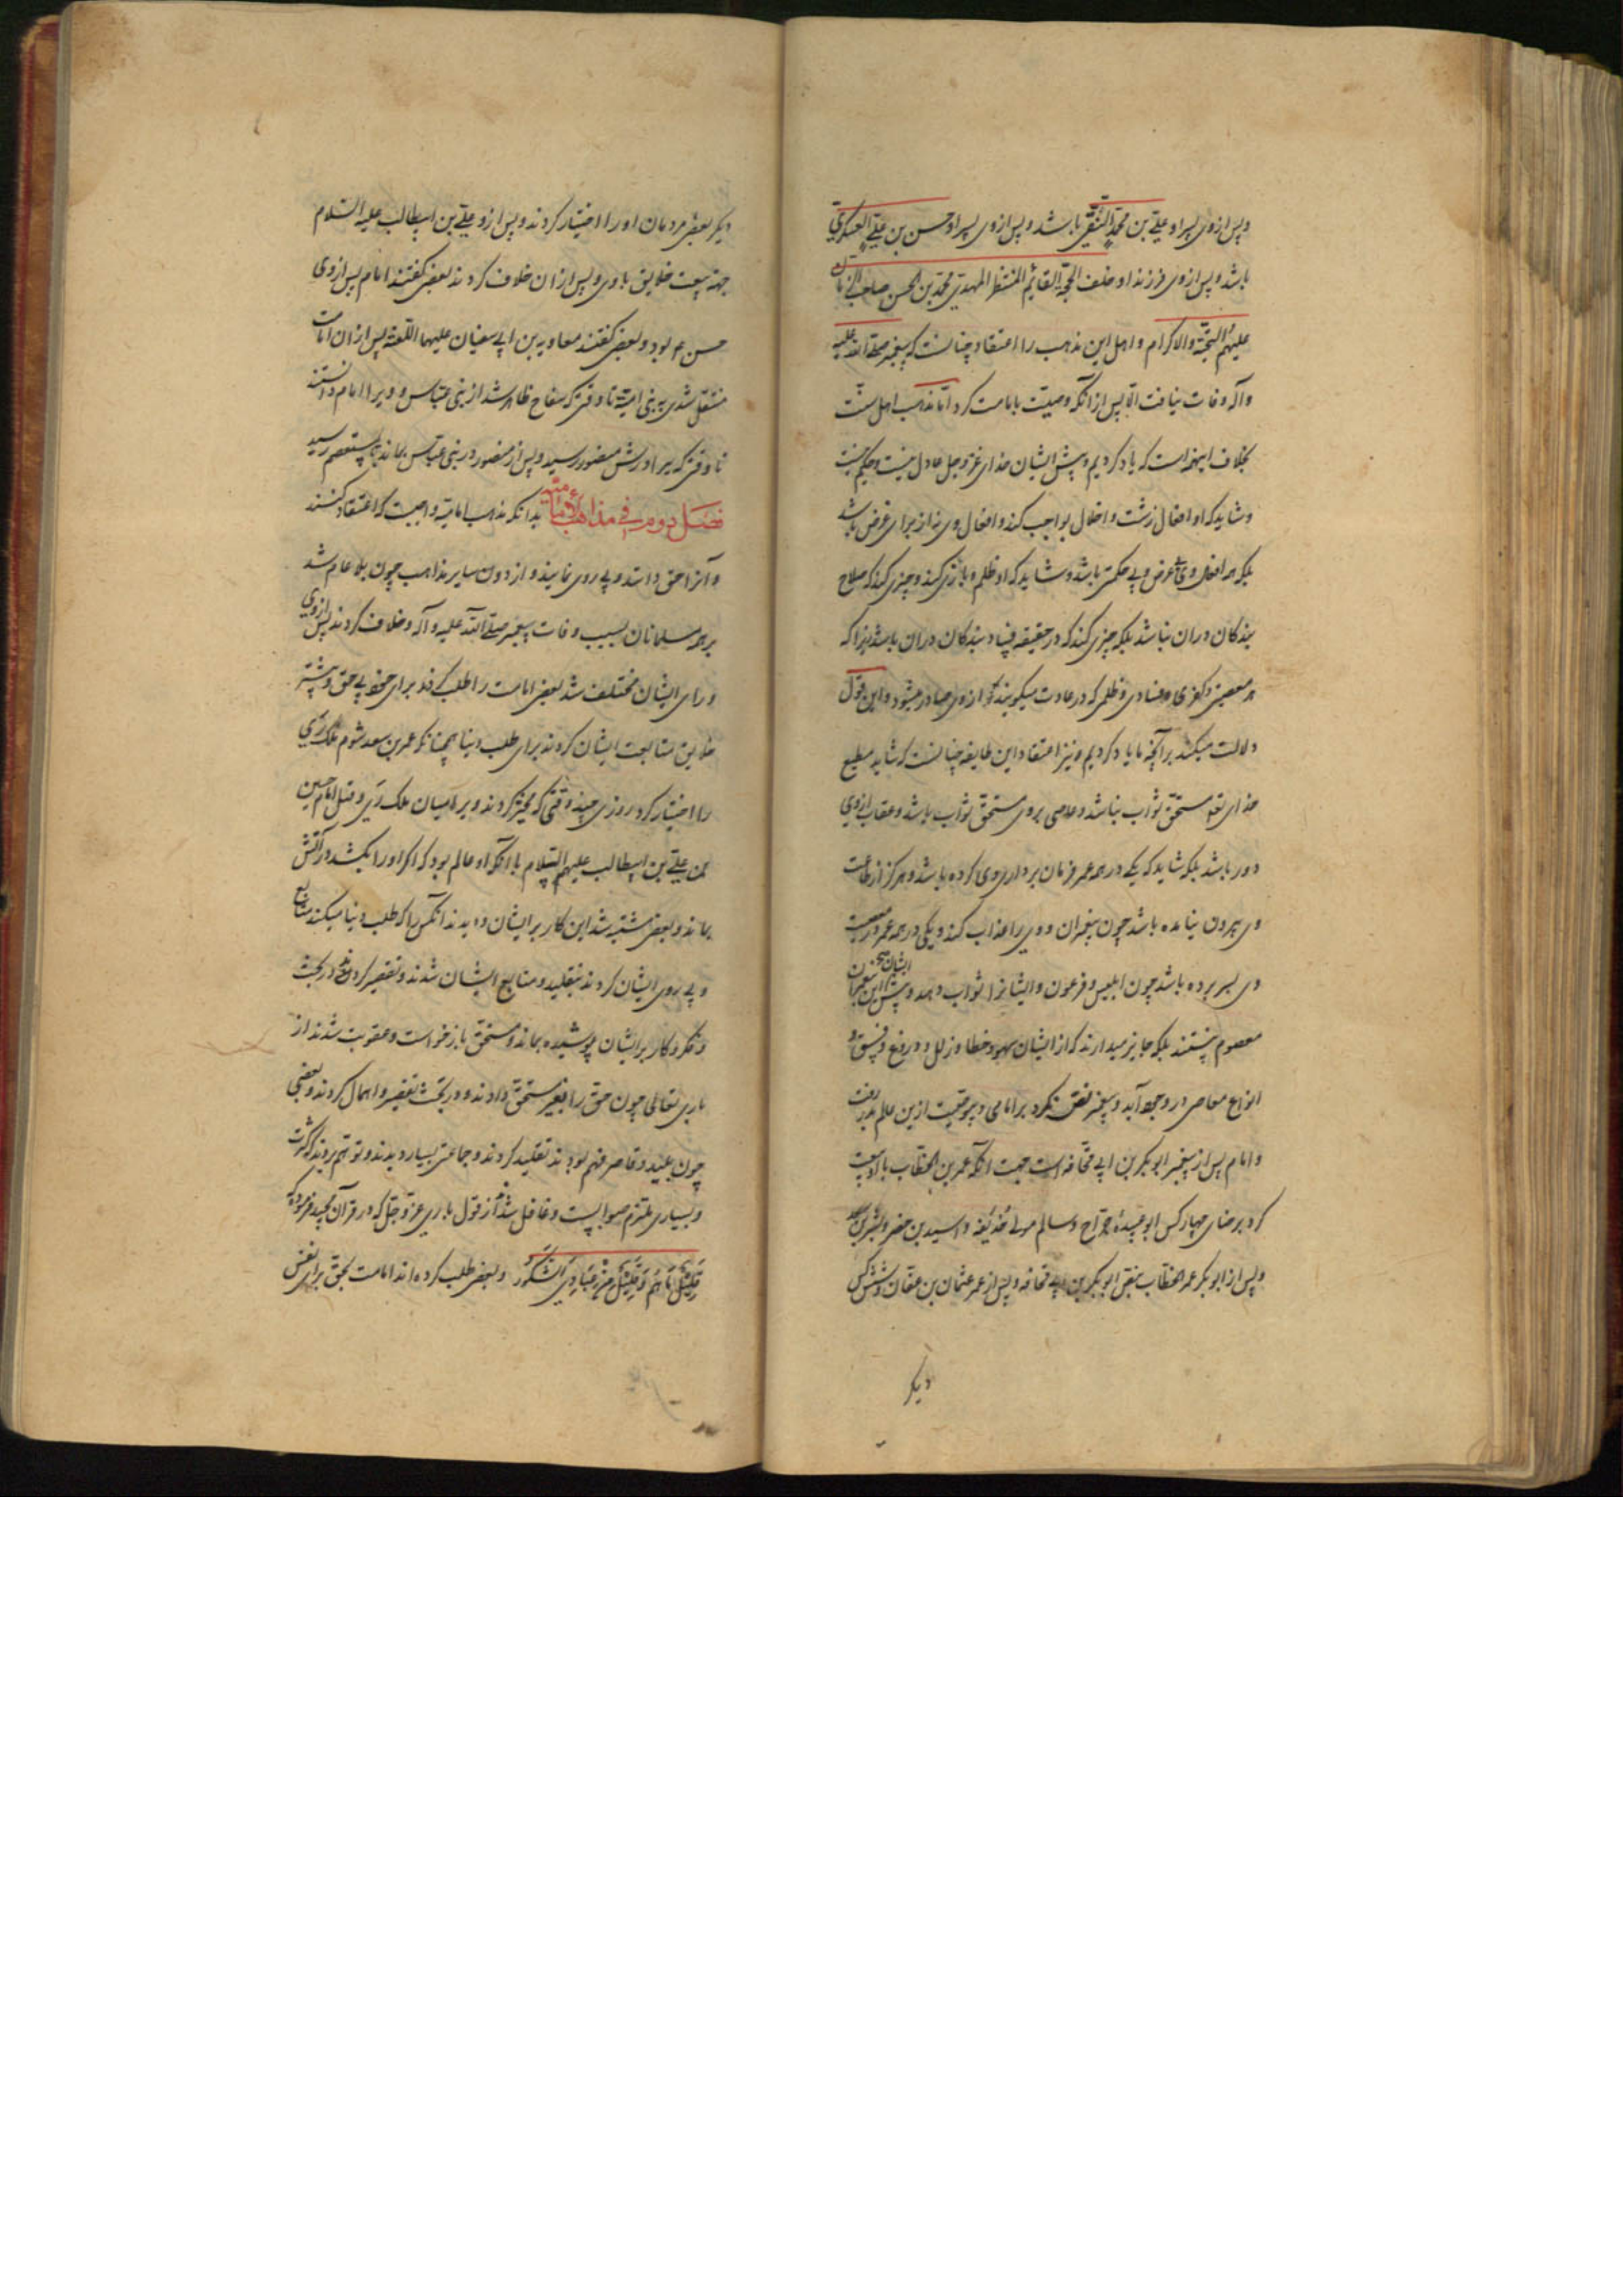 و پس ازوی پسر او علی بن محمد النقی باشد و پس ازوی پسر او حسن بن علی العسکری
باشد و پس ازوی فرزند او خلف الحجة القایم المنتظر المهدی محمد بن الحسن صاحب الزمان
علیهم التحیة والاکرام و اهل این مذهب را اعتقاد چنانست که پیغمبر صلی الله علیه
وآله وفات نیافت الا پس از آنکه وصیت بامامت کرد اما مذهب اهل سنت
بخلاف اینهمه است که یاد کردیم و پیش ایشان خدای عز و جل عادل نیست و حکیم نیست
و شاید که او افعال زشت و اخلال بواجب کند و افعال وی نه از برای غرض باشد
بلکه همه افعال وی بی غرض و بی حکمت باشد و شاید که او ظلم و بازی کند و چیزی کند که صلاح
بندکان در ان نباشد بلکه چیزی کند که در حقیقة فساد بندکان دران باشد زیرا که
هر معصیتی و کفری و فسادی و ظلمی که در عادت میکویند که ازوی صادر میشود و این قول
دلالت میکند برآنچه ما یاد کردیم و نیز اعتقاد این طایفه چنانست که شاید مطیع
خدای تع مستحق ثواب نباشد و عاصی بر وی مستحق ثواب باشد و عقاب ازوی
دور باشد بلکه شاید که یکی در همه عمر فرمان برداری وی کرده باشد و هرکز از طاعت
وی بیرون نیامده باشد چون پیغمبران و وی را عذاب کند و یکی در همه عمر در معصیت
وی بسر برده باشد چون ابلیس و فرعون و ایشانرا ثواب دهد و پیش ایشان پیغمبران
معصوم نیستند بلکه جایز میدارند که از ایشان سهو و خطا و زلل و دروغ و فسق و
انواع معاصی در وجود آید و پیغمبر نص نکرد بر امامی و بی وصیت ازین عالم بدر رفت
و امام پس از پیغمبر ابو بکر بن ابی قحافه است جهت آنکه عمر بن الخطاب با او بیعت
کرد برضای چهار کس ابو عبیدۀ جراح و سالم مولی حذیفه و اسید بن حضیر و بشر بن سعد
و پس از ابو بکر عمر الخطاب بنص ابو بکر بن ابی قحافه و پس از عمر عثمان بن عفان و شش کس
دیکر
دیکر بعضی مردمان او را اختیار کردند و پس ازو علی بن ابیطالب علیه السلام
جهة بیعت خلایق باوی و پس ازان خلاف کردند بعضی کفتند امام پس ازوی
حسن ع بود و بعضی کفتند معاویه بن ابی سفیان علیهما اللعنة پس ازان امامت
منتقل شدی به بنی امیة تا وقتی که سفاح ظاهر شد از بنی عباس و ویرا امام دانستند
تا وقتی که برادرش منصور رسید و پس از منصور در بنی عباس بماند تا بمستعصم رسید
فصل دوم در فی مذاهب الامامیة بدانکه مذهب امامیة واجبست که اعتقاد کنند
و آنرا حق دانند و پی روی نمایند و از دون سایر مذاهب چون بلا عام شد
بر همه مسلمانان بسبب وفات پیغمبر صلی الله علیه و آله و خلاف کردند پس ازوی
و رای ایشان مختلف شد بعضی امامت را طلب کردند برای خود بی حق و بیشتر
خلایق متابعت ایشان کردند برای طلب دنیا همچنانکه عمر بن سعد شوم ملک ری
را اختیار کرد روزی چند وقتی که مخیر کردند ویرا میان ملک ری و قتل امام حسین
بن علی بن ابیطالب علیهم السلام با آنکه او عالم بود که اکر او را بکشد در آتش
بماند و بعضی مشتبه شد این کار بر ایشان و دیدند آنکس را که طلب دنیا میکند متابع
و پی روی ایشان کردند بتقلید و متابع ایشان شدند و تقصیر کردند در بحث
و فکر و کار بر ایشان پوشیده بماند و مستحق بازخواست و عقوبت شدند از
باری تعالی چون حق را بغیر مستحق دادند و در بحث تقصیر و اهمال کردند و بعضی
چون بلید و قاصر فهم بودند تقلید کردند و جماعتی بسیار دیدند و توهم بردند که کثرت
و بسیاری ملتزم صوابیست و غافل شدند از قول باری عز و جل که در قرآن مجید فرموده که
قَلِیلٌ مَا هُم وَقَلِیلٌ مِنْ عِبَادِیَ الشَّکُور و بعضی طلب کرده اند امامت بحق برای نفس